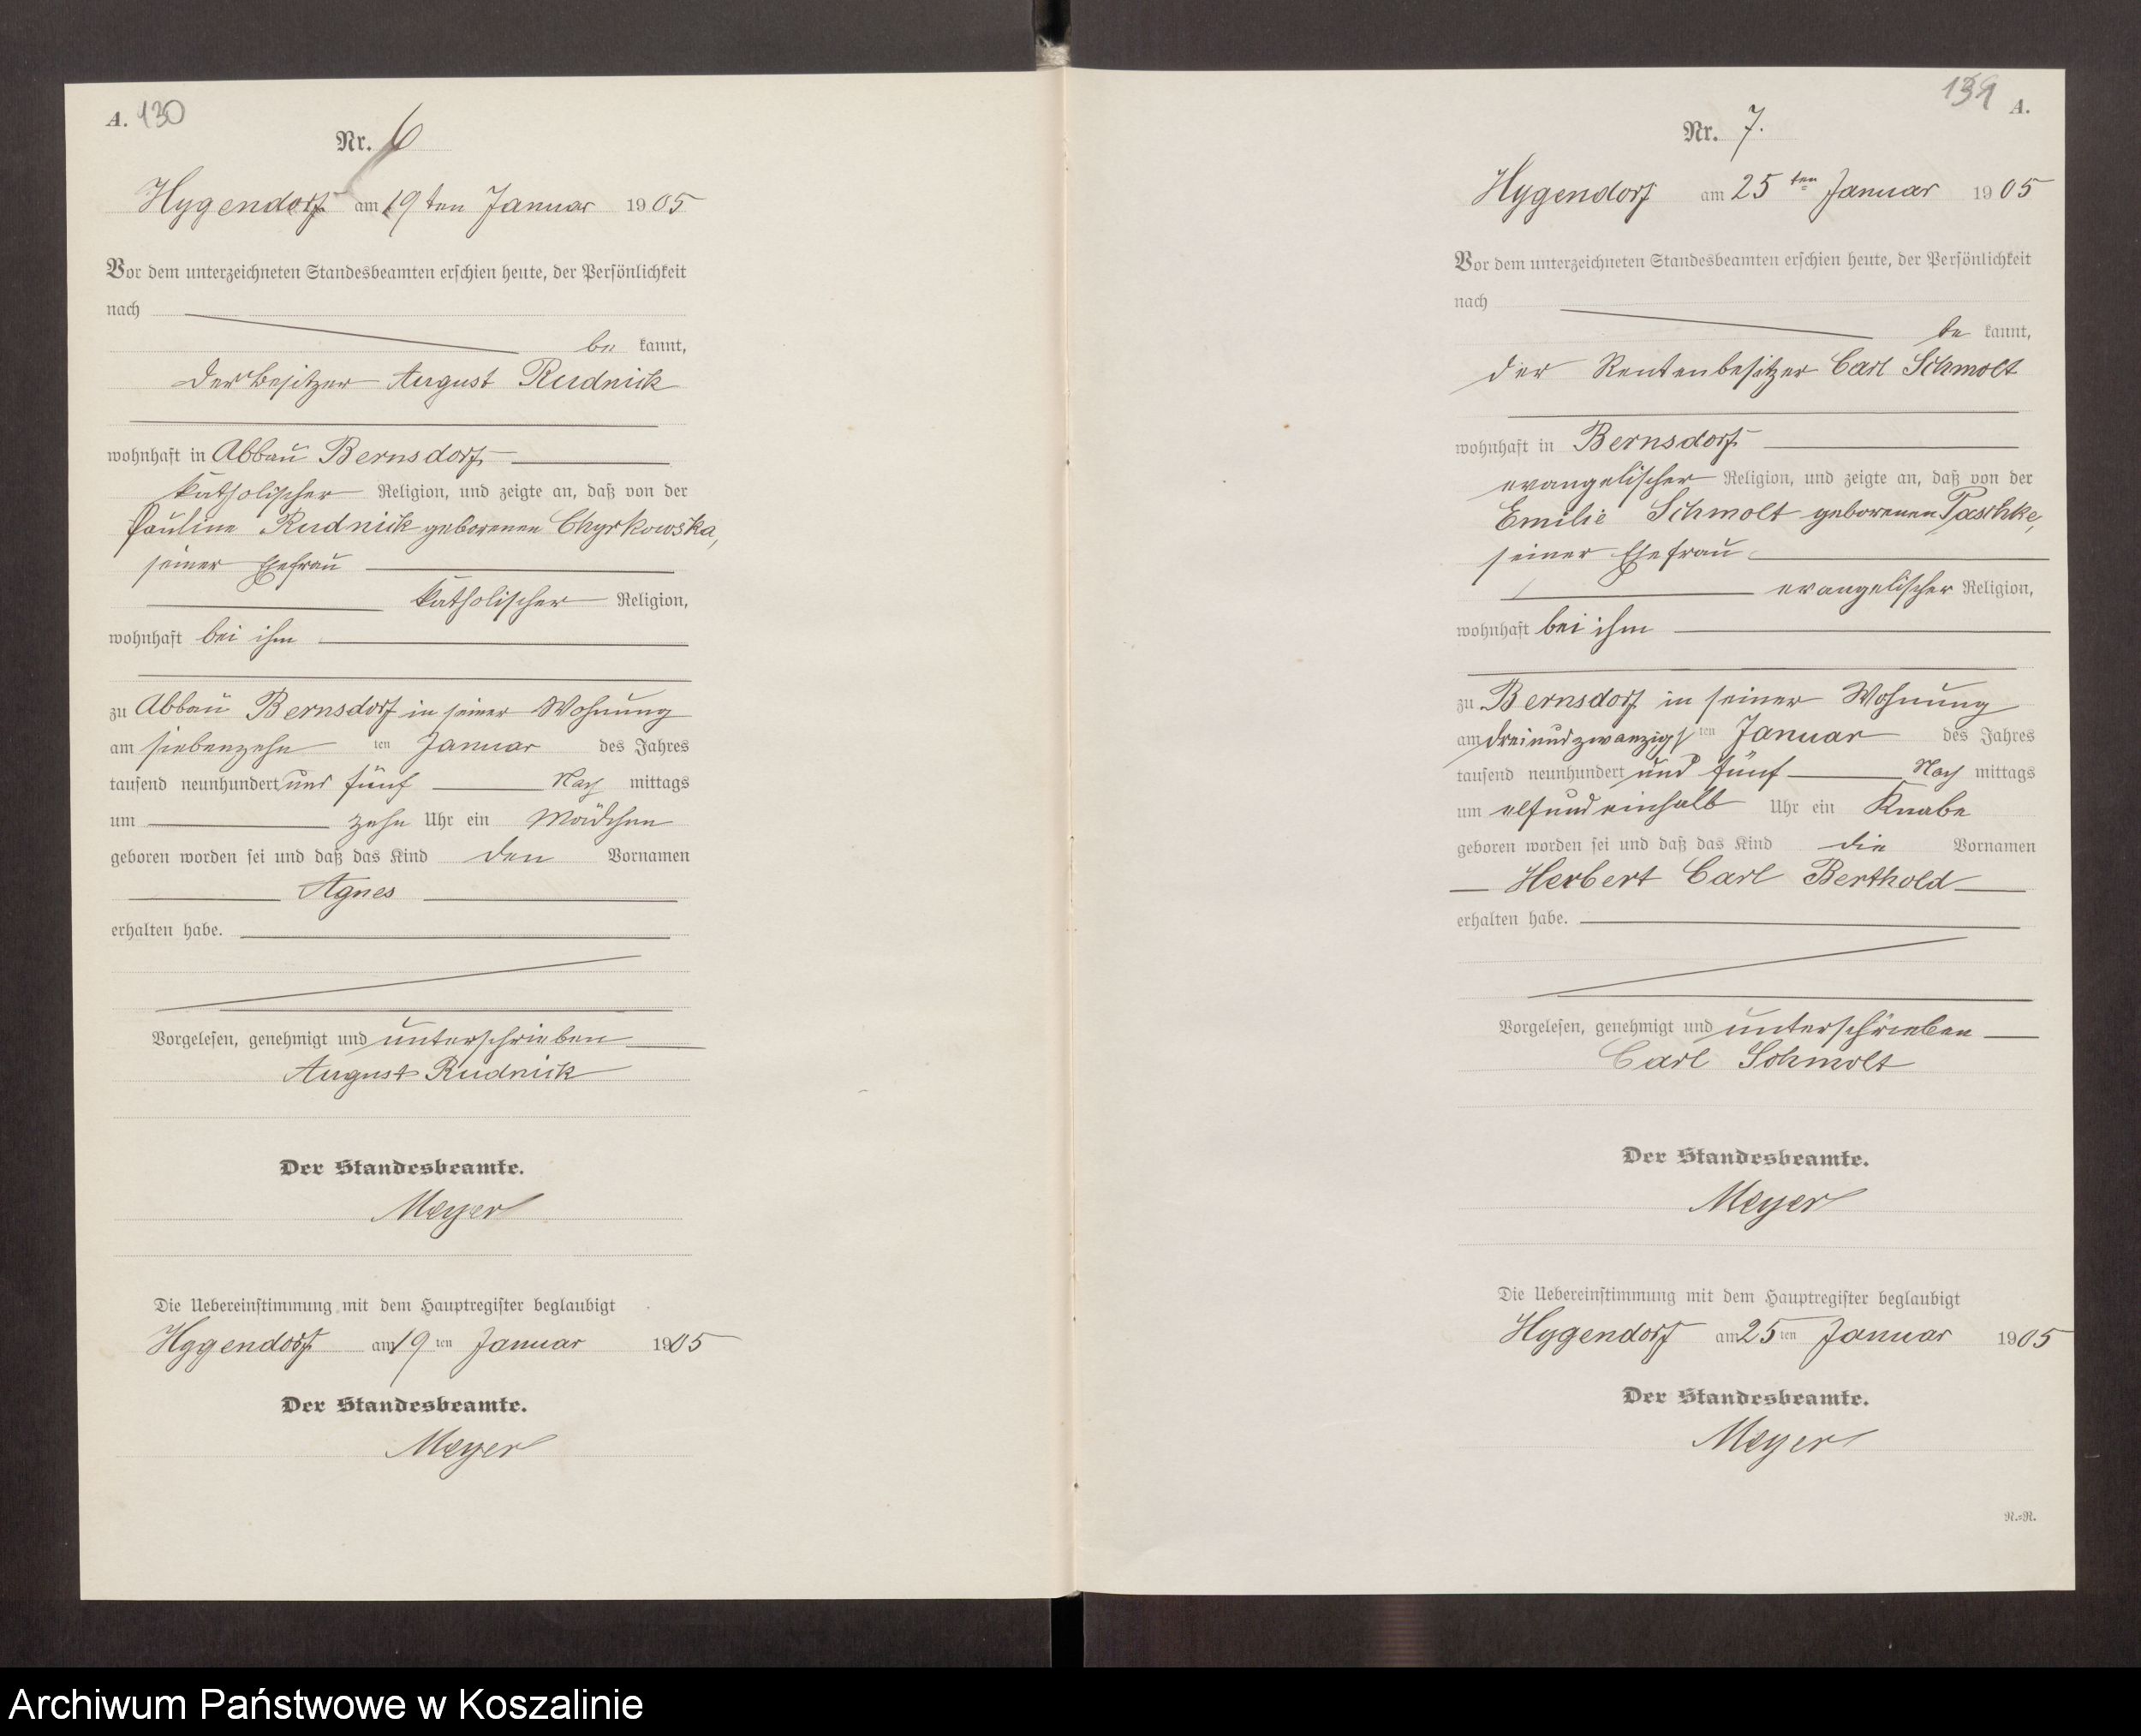 A. 130
Nr. 6
Hygendorf am 19ten Januar 1905
Vor dem unterzeichneten Standesbeamten erschien heute, der Persönlichkeit
nach
be kannt,
der Besitzer August Rudnick
wohnhaft in Abbau Bernsdorf
katholischer Religion, und zeigte an, daß von der
Pauline Rudnick geborenen Chyrkowska,
seiner Ehefrau
katholischer Religion,
wohnhaft bei ihm
zu Abbau Bernsdorf in seiner Wohnung
am siebenzehn ten Januar des Jahres
tausend neunhundert und fünf Nach mittags
um zehn Uhr ein Mädchen
geboren worden sei und daß das Kind den Vornamen
Agnes
erhalten habe.
Vorgelesen, genehmigt und unterschrieben
August Rudnick
Der Standesbeamte.
Meyer
Die Uebereinstimmung mit dem Hauptregister beglaubigt
Hygendorf am 19 ten Januar 1905
Der Standesbeamte.
Meyer
139 A.
Nr. 7.
Hygendorf am 25ten Januar 1905
Vor dem unterzeichneten Standesbeamten erschien heute, der Persönlichkeit
nach
be kannt,
der Rentenbesitzer Carl Schmolt
wohnhaft in Bernsdorf
evangelischer Religion, und zeigte an, daß von der
Emilie Schmolt geborenen Paschke,
seiner Ehefrau
evangelischer Religion,
wohnhaft bei ihm
zu Bernsdorf in seiner Wohnung
am dreiundzwanzigs ten Januar des Jahres
tausend neunhundert und fünf Nach mittags
um elfundeinhalb Uhr ein Knabe
geboren worden sei und daß das Kind die Vornamen
Herbert Carl Berthold
erhalten habe.
Vorgelesen, genehmigt und unterschrieben
Carl Schmolt
Der Standesbeamte.
Meyer
Die Uebereinstimmung mit dem Hauptregister beglaubigt
Hygendorf am 25 ten Januar 1905
Der Standesbeamte.
Meyer
N.=N.
Archiwum Państwowe w Koszalinie